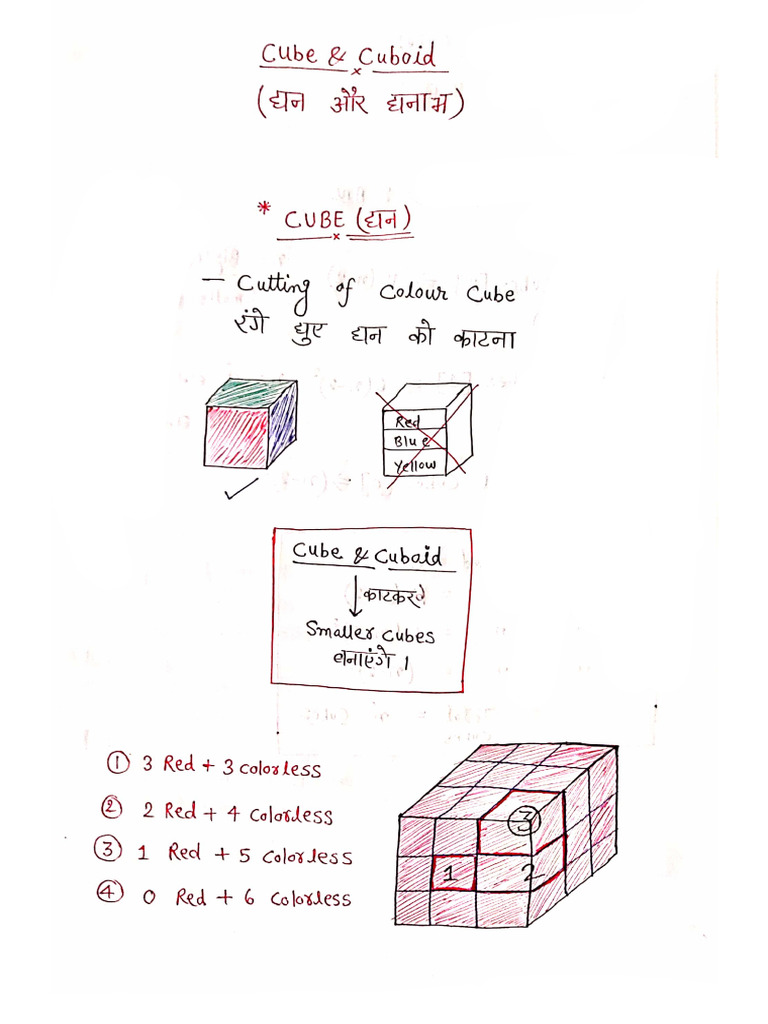 Cube & Cuboid
(घन और घनाभ)
* CUBE (घन)
– Cutting of Colour Cube
रंगे धुए घन को काटना
Red
Blue
Yellow
Cube & Cuboid
काटकर
Smaller Cubes
बनाएंगे ।
① 3 Red + 3 colorless
② 2 Red + 4 colorless
③ 1 Red + 5 colorless
④ 0 Red + 6 colorless
③
1 2